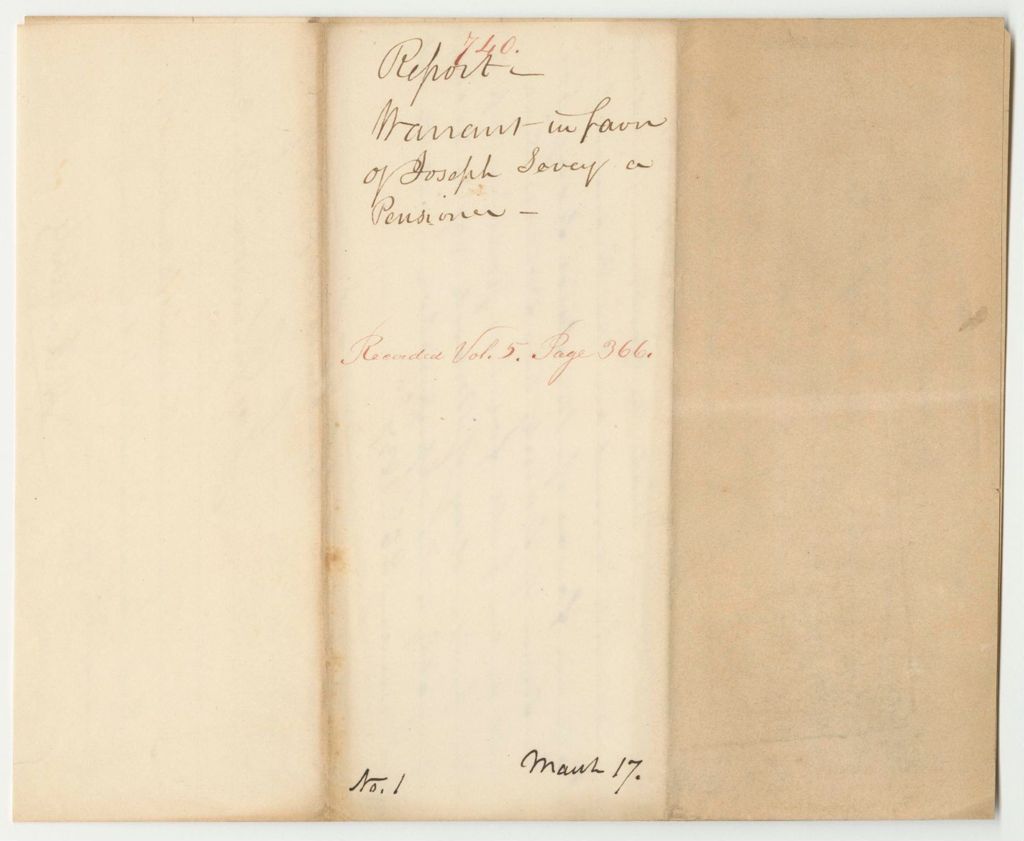 740.
Report –
Warrant in favor
of Joseph Sevey a
Pensioner –
Recorded Vol. 5. Page 366.
No. 1
March 17.